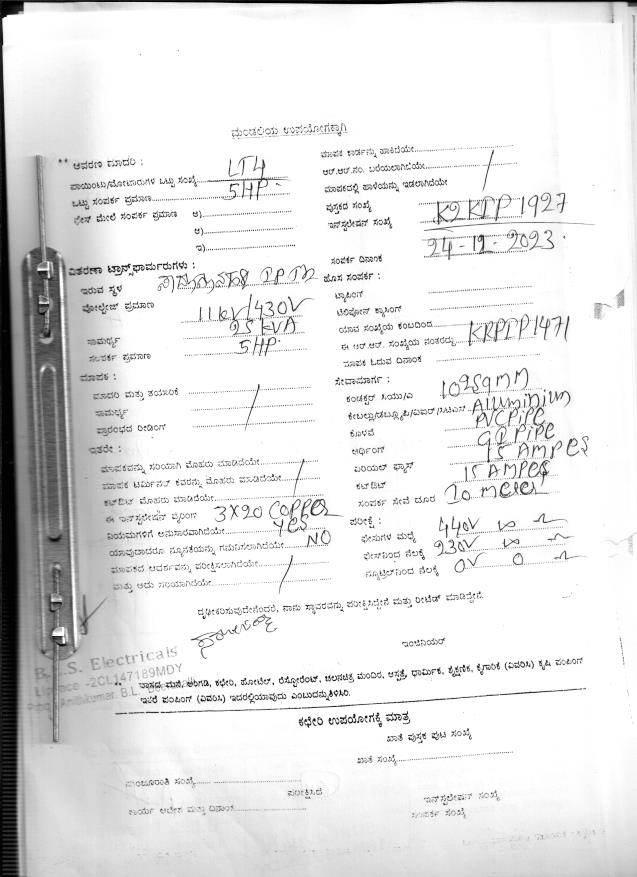 ಮಂಡಲಿಯ ಉಪಯೋಗಕ್ಕಾಗಿ
** ಆವರಣ ಮಾದರಿ :
LT4
ಪಾಯಿಂಟು/ಮೋಟಾರುಗಳ ಒಟ್ಟು ಸಂಖ್ಯೆ
ಒಟ್ಟು ಸಂಪರ್ಕ ಪ್ರಮಾಣ 5HP
ಫೇಸ್ ಮೇಲೆ ಸಂಪರ್ಕ ಪ್ರಮಾಣ ಅ)
ಆ)
ಇ)
ವಿತರಣಾ ಟ್ರಾನ್ಸ್‌ಫಾರ್ಮರುಗಳು :
ಇರುವ ಸ್ಥಳ
ವೋಲ್ಟೇಜ್ ಪ್ರಮಾಣ 11kV/430V
ಸಾಮರ್ಥ್ಯ 25 kVA
ಸಂಪರ್ಕ ಪ್ರಮಾಣ 5HP
ಮಾಪಕ :
ಮಾದರಿ ಮತ್ತು ತಯಾರಿಕೆ
ಸಾಮರ್ಥ್ಯ
ಪ್ರಾರಂಭದ ರೀಡಿಂಗ್
ಇತರೇ :
ಮಾಪಕವನ್ನು ಸರಿಯಾಗಿ ಮೊಹರು ಮಾಡಿದೆಯೇ
ಮಾಪಕ ಟರ್ಮಿನಲ್ ಕವರನ್ನು ಮೊಹರು ಮಾಡಿದೆಯೇ
ಕಟ್‌ಔಟ್ ಮೊಹರು ಮಾಡಿದೆಯೇ
ಈ ಇನ್‌ಸ್ಟಲೇಷನ್ ವೈರಿಂಗ್ 3X20 COPPER
ನಿಯಮಗಳಿಗೆ ಅನುಸಾರವಾಗಿದೆಯೇ YES
ಯಾವುದಾದರೂ ನ್ಯೂನತೆಯನ್ನು ಗಮನಿಸಲಾಗಿದೆಯೇ NO
ಮಾಪಕದ ಆದರ್ಶವನ್ನು ಪರೀಕ್ಷಿಸಲಾಗಿದೆಯೇ
ಮತ್ತು ಅದು ಸರಿಯಾಗಿದೆಯೇ
ಮಾಪಕ ಕಾರ್ಡನ್ನು ಹಾಕಿದೆಯೇ
ಆರ್.ಆರ್.ನಂ. ಬರೆಯಲಾಗಿದೆಯೇ
ಮಾಪಕದಲ್ಲಿ ಹಾಳೆಯನ್ನು ಇಡಲಾಗಿದೆಯೇ
ಪುಸ್ತಕದ ಸಂಖ್ಯೆ
ಇನ್‌ಸ್ಟಲೇಷನ್ ಸಂಖ್ಯೆ K2KPP 1927
ಸಂಪರ್ಕ ದಿನಾಂಕ 24-12-2023
ಹೊಸ ಸಂಪರ್ಕ :
ಟ್ಯಾಪಿಂಗ್
ಟೆಲಿಫೋನ್ ಕ್ರಾಸಿಂಗ್
ಯಾವ ಸಂಖ್ಯೆಯ ಕಂಬದಿಂದ
ಈ ಆರ್.ಆರ್. ಸಂಖ್ಯೆಯ ನಂತರದ್ದು KRPIP1471
ಮಾಪಕ ಓದುವ ದಿನಾಂಕ
ಸೇವಾಮಾರ್ಗ :
ಕಂಡಕ್ಟರ್ 10 2SqMM
Alluminium
ಕೊಳವೆ PVC Pipe
ಅರ್ಥಿಂಗ್ GI Pipe
ಏರಿಯಲ್ ಫ್ಯೂಸ್ 15 AMPES
ಕಟ್‌ಔಟ್ 15 AMPES
ಸಂಪರ್ಕ ಸೇವೆ ದೂರ 20 meter
ಪರೀಕ್ಷೆ :
ಫೇಸುಗಳ ಮಧ್ಯೆ 440V ∞ Ω
ಫೇಸ್‌ನಿಂದ ನೆಲಕ್ಕೆ 230V ∞ Ω
ನ್ಯೂಟ್ರಲ್‌ನಿಂದ ನೆಲಕ್ಕೆ 0V 0 Ω
ದೃಢೀಕರಿಸುವುದೇನೆಂದರೆ, ನಾನು ಸ್ಥಾವರವನ್ನು ಪರೀಕ್ಷಿಸಿದ್ದೇನೆ ಮತ್ತು ರೀಟೆಡ್ ಮಾಡಿದ್ದೇನೆ.
ಇಂಜಿನಿಯರ್
Electricals
-2CL147189MDY
Anilkumar. B.L.
** ವಾಸದ ಮನೆ, ಅಂಗಡಿ, ಕಛೇರಿ, ಹೋಟೆಲ್, ರೆಸ್ಟೋರೆಂಟ್, ಚಲನಚಿತ್ರ ಮಂದಿರ, ಆಸ್ಪತ್ರೆ, ಧಾರ್ಮಿಕ, ಶೈಕ್ಷಣಿಕ, ಕೈಗಾರಿಕೆ (ವಿವರಿಸಿ) ಕೃಷಿ ಪಂಪಿಂಗ್
ಇತರೆ ಪಂಪಿಂಗ್ (ವಿವರಿಸಿ) ಇದರಲ್ಲಿಯಾವುದು ಎಂಬುದನ್ನುತಿಳಿಸಿರಿ.
ಕಛೇರಿ ಉಪಯೋಗಕ್ಕೆ ಮಾತ್ರ
ಖಾತೆ ಪುಸ್ತಕ ಪುಟ ಸಂಖ್ಯೆ
ಖಾತೆ ಸಂಖ್ಯೆ
ಮಂಜೂರಾತಿ ಸಂಖ್ಯೆ
ಪರೀಕ್ಷಿಸಿದೆ
ಕಾರ್ಯ ಆದೇಶ ಮತ್ತು ದಿನಾಂಕ
ಇನ್‌ಸ್ಟಲೇಷನ್ ಸಂಖ್ಯೆ
ಸಂಪರ್ಕ ಸಂಖ್ಯೆ